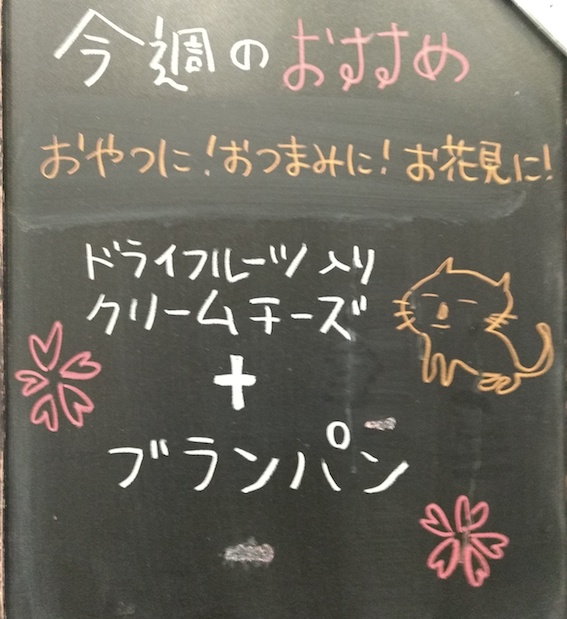 今週のおすすめ
おやつに!おつまみに!お花見に!
ドライフルーツ入り
クリームチーズ
+
ブランパン